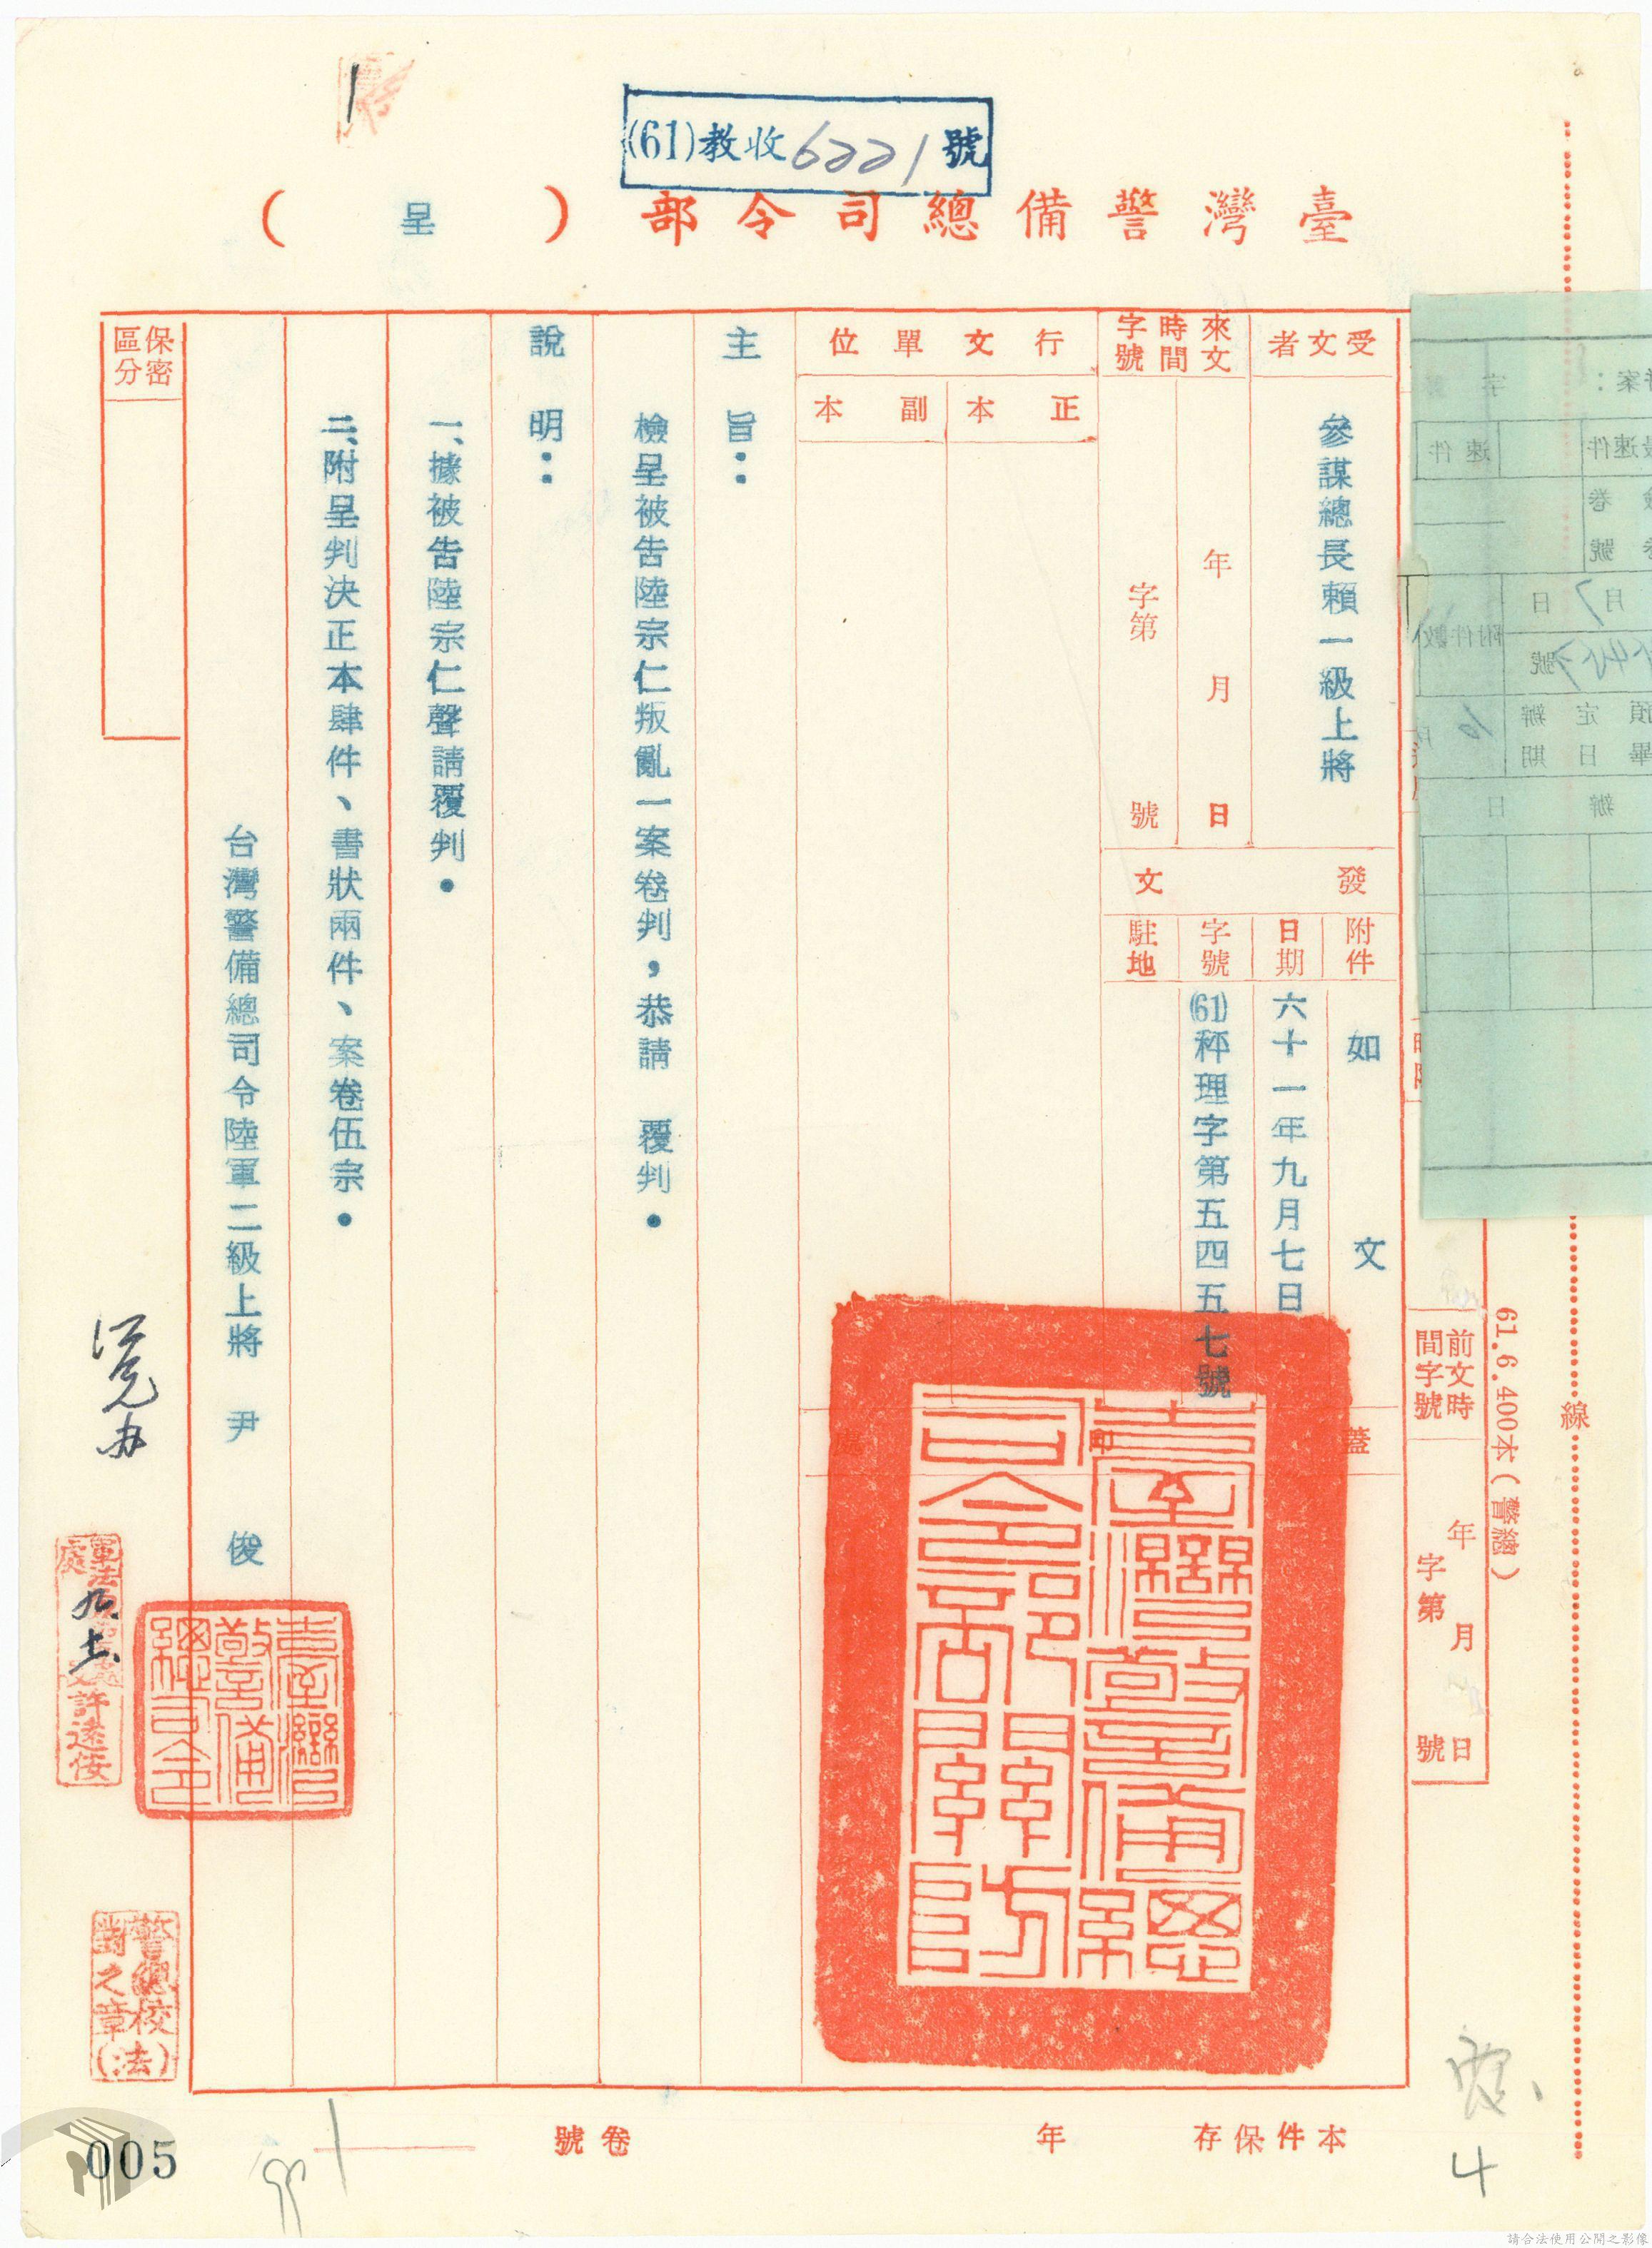 (61)教收6221號
臺灣警備總司令部（呈）
受文者
參謀總長賴一級上將
來文
時間
字號
年 月 日
字第 號
行文單位
正本
副本
發文
附件
如文
日期
六十一年九月七日
字號
(61)秤理字第五四五七號
駐地
蓋印
主旨：
檢呈被告陸宗仁叛亂一案卷判，恭請 覆判．
說明：
一、據被告陸宗仁聲請覆判．
二、附呈判決正本肆件、書狀兩件、案卷伍宗．
台灣警備總司令陸軍二級上將 尹 俊
保密區分
臺灣警備總司令部關防
臺灣警備總司令
警總校對之章(法)
前文時間字號
年 月 日
字第 號
61.6.400本（警總）
線
速件
附件數
卷號
月7日
號
預定辦畢日期
本件保存 年
卷號
4
005
請合法使用公開之影像